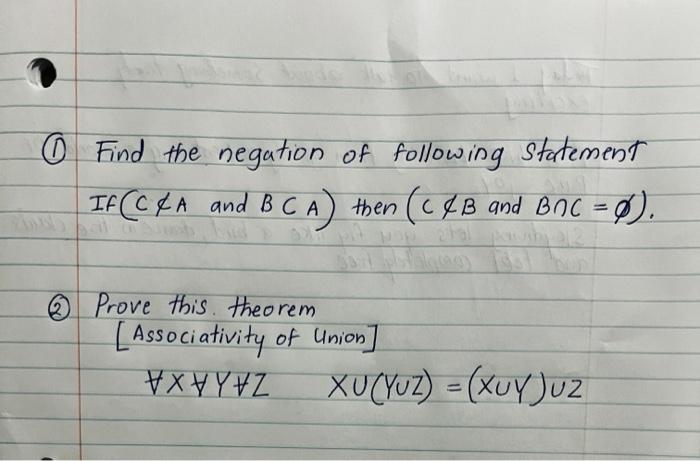 ① Find the negation of following statement
If (C ⊄ A and B ⊂ A) then (C ⊄ B and B∩C = ∅).
② Prove this. theorem
[Associativity of Union]
∀X∀Y∀Z X∪(Y∪Z) = (X∪Y)∪Z